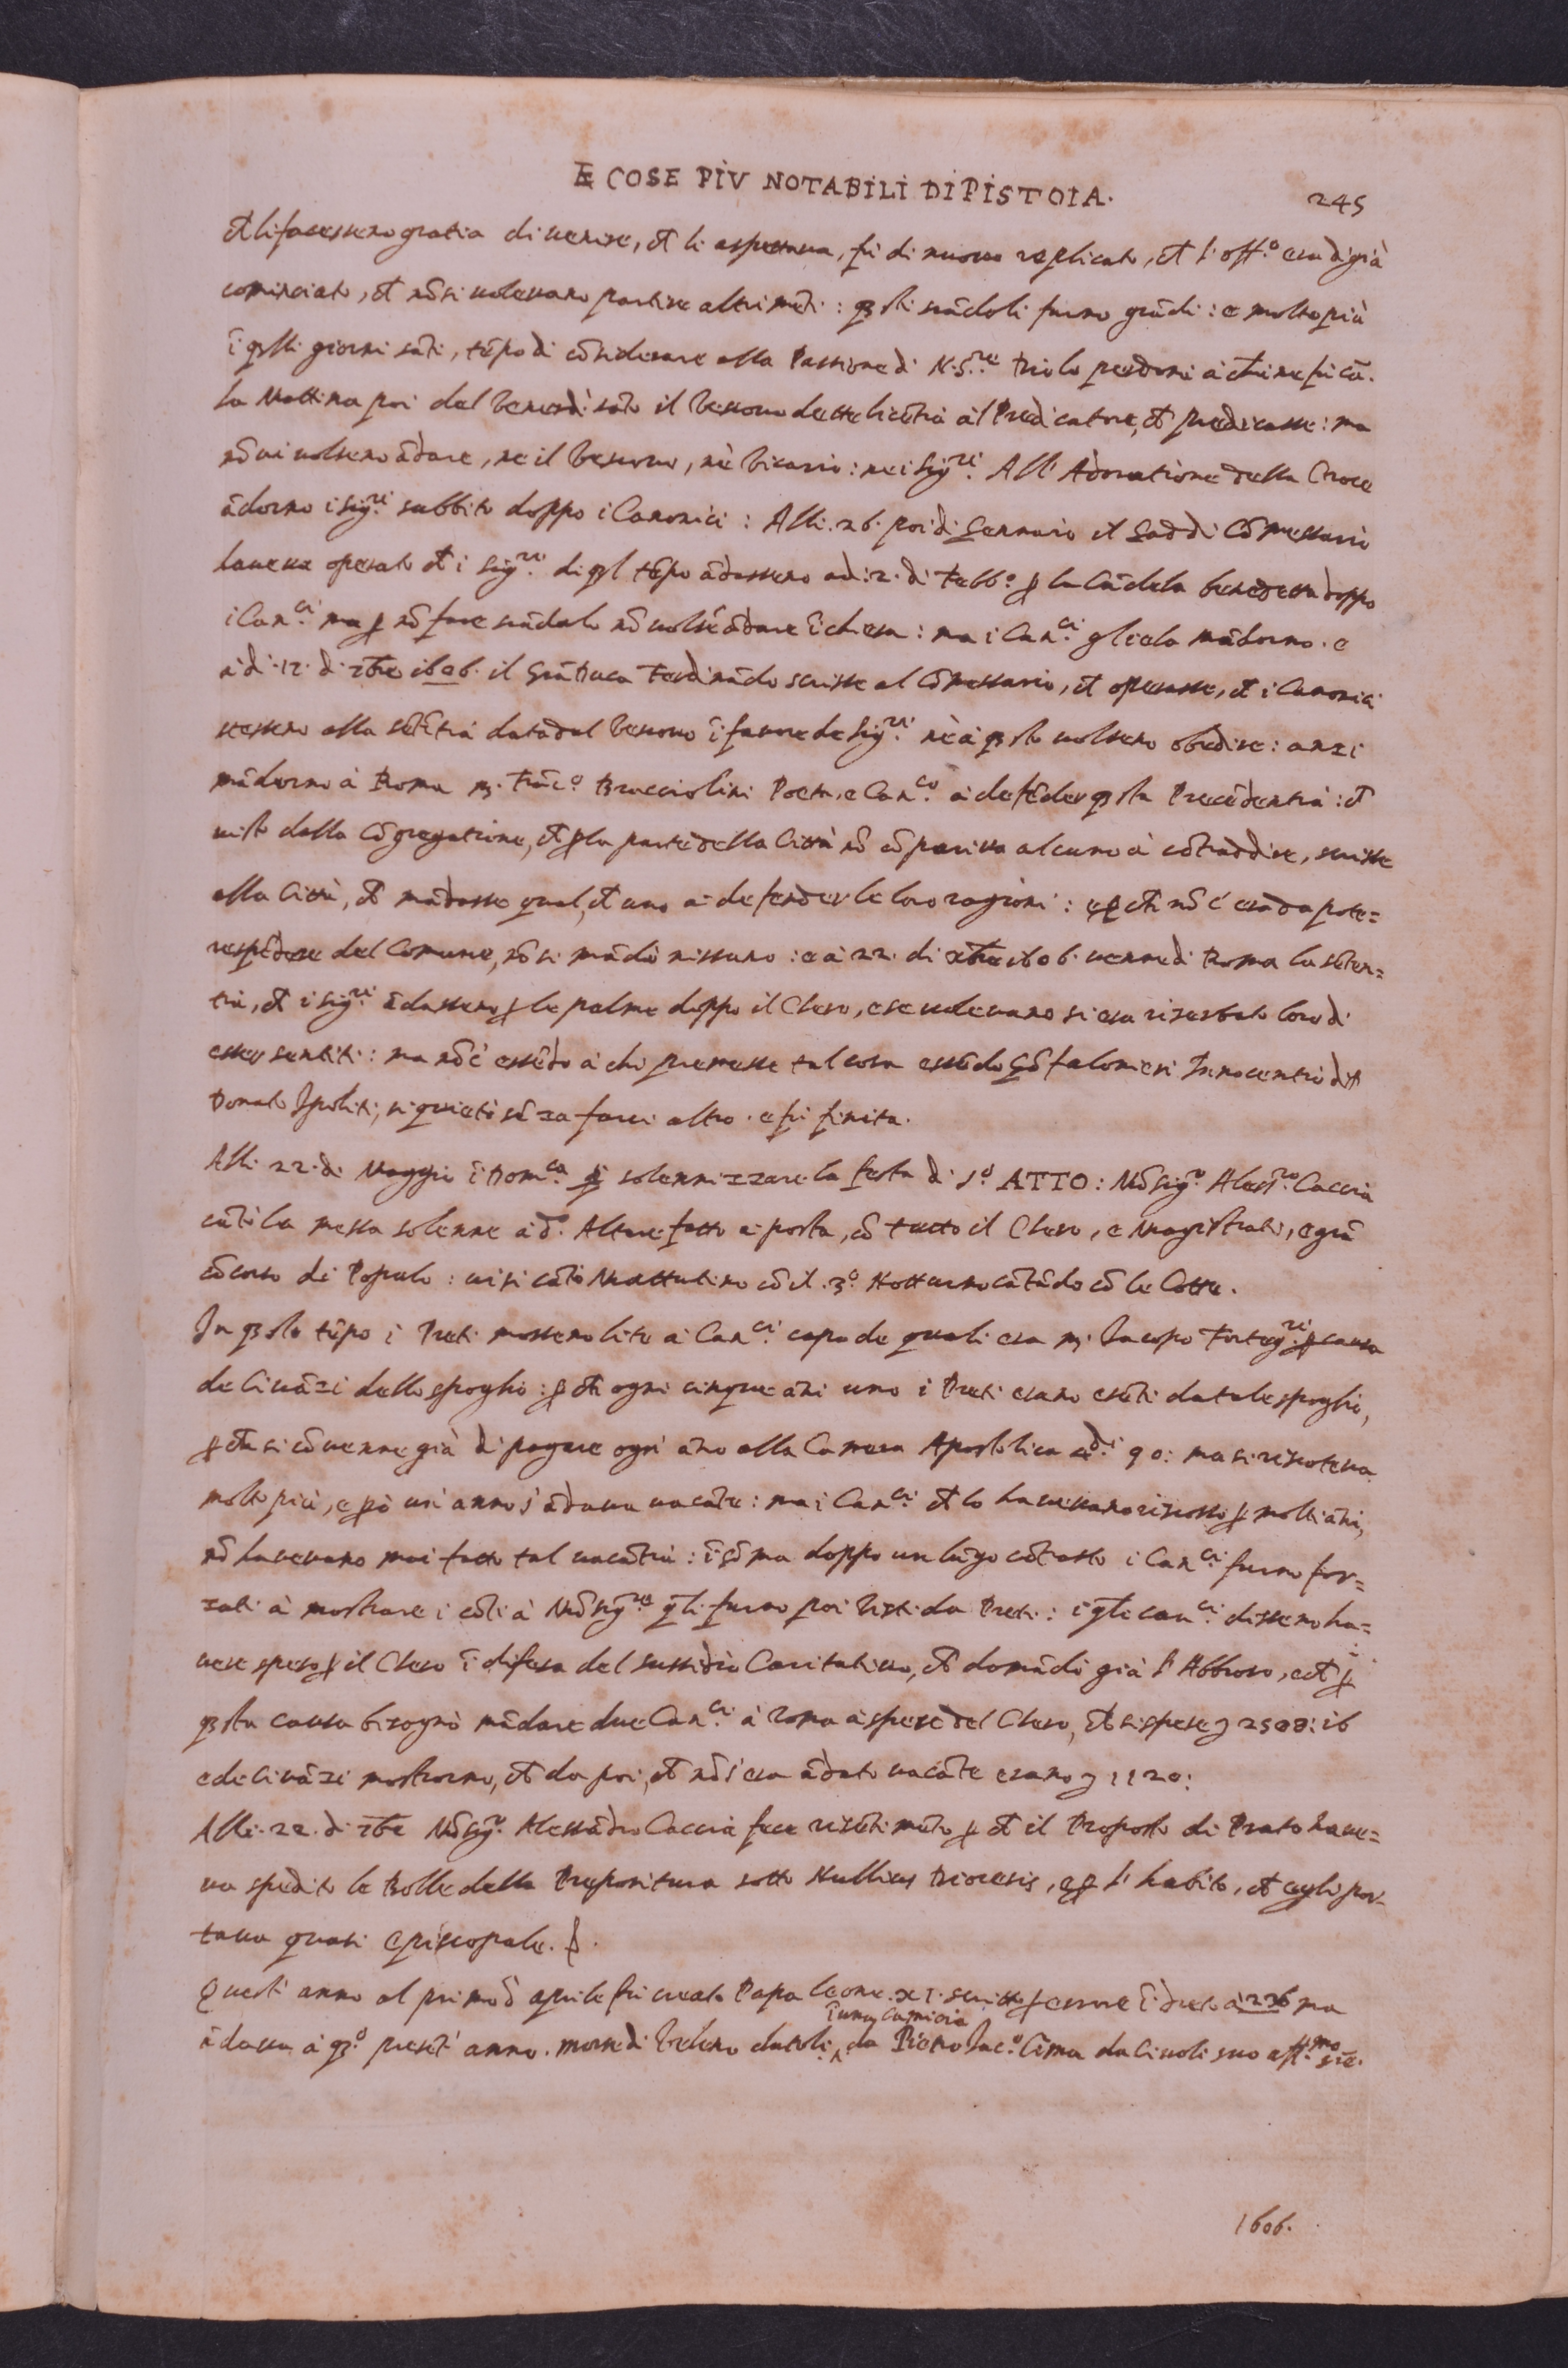 E COSE PIV NOTABILI DI PISTOIA. 245
ch li facessero gratia di venire, ch li aspettava, fu di nuovo replicato, ch l'off.º era di già
cominciato, et nō si volevano partire altrimēti: qsti scādoli furno grādi: e molto più
ī qlli giorni sāti, tēpo di cōsiderare alla Passione di N.S.re Dio lo perdoni à chi ne fu cā.
La Mattina poi del Venerdì sāto il Vescovo dette licētia al Predicatore, ch predicasse: ma
nō vi volsero ādare, ne il Vescovo, nè Vicario: ne i Sig.ri All' Adoratione della Croce
ādorno i sig.ri subbito doppo i Canonici: Alli. 26. poi di Gennaio il Gaddi Cōmessario
haveva operato ch i Sig.ri di ql tēpo ādassero adi: 2. di Febb.º p la Cādela benedetta doppo
i Can.ci ma p nō fare scādalo nō volsē ādare ī chiesa: ma i Can.ci gliela mādorno. e
à di. 12. di xbre 1606. il Grā Duca Ferdinādo scrisse al Cōmessario, ch operasse, ch i Canonici
stessero alla sētētia data dal Vescovo ī favore de Sig.ri nè à qsto volsero obedire: anzi
mādorno à Roma m. Frāc.º Bracciolini Poeta, e Can.co à defēder qsta Precedentia: et
visto dalla Cōgregatione, ch p la parte della Città nō cōpariva alcuno à cōtraddire, scrisse
alla Città, ch mādasse qual, ch uno à defender le loro ragioni: e p ch nō c'era da pote=
respēdere del Comune, nō si mādò nissuno: e à 22. di xbre 1606. venne di Roma la sēten=
tia, ch i sig.ri ādassero p le palme doppo il Clero, e se volevano si era riserbato loro di
esser sentiti: ma nō c'essēdo à chi premesse tal cosa essēdo Gōfalonieri Innocentio di
Donato Ipoliti, si quietò sēza farci altro. e fu finita.
Alli 22. di Maggio ī Dom.ca p solennizzare la festa di S.º ATTO: Mōsig.r Aless.ro Caccia
cātò la messa solenne à d.º Altare fatto a posta, cō tutto il Clero, e Magistrati, e grā
cōcorso di Popolo: vi si cātò Mattutino cō il. 3.º Notturno cātādo cō le Cotte.
In qsto tēpo i Preti mossero lite a Can.ci capo de quali era m. Iacopo Forteg.ri p causa
de Civāzi dello spoglio: p ch ogni cinque āni uno i Preti erano esēti da tale spoglio,
p ch si cōvenne già di pagare ogni āno alla Camera Apostolica 90: ma si riscoteva
molto più, e p ò un' anno s'ādava vacāte: ma i Can.ci ch lo havevano riscosso p molti āni,
nō havevano mai fatto tal vacātia: ī sōma doppo un lūgo cōtrasto i Can.ci furno for=
zati à mostrare i cōti à Mōsig.re qli furno poi visti da Preti: i qli can.ci dissero ha=
vere speso p il Clero ī difesa del sussidio Caritativo, ch domādò già l'Abbioso, e ch p
qsta causa bisognò mādare due Can.ci à Roma à spese del Clero, ch si spese 2508: 16
e de civāzi mostrorno, ch da poi, ch nō s'era ādato vacāte erano 1120:
Alli. 22. di xbre Mōsig.r Alessādro Caccia fece risētimēto p ch il Proposto di Prato have=
va spedito le Bolle della Prepositura sotto Nullius Diocesis, e p l'habito, ch egli por=
tava quasi Episcopale.
Questi anno al primo d' aprile fu creato Papa Leone. XI. scritto p errore ī drieto à 226 ma
īuna camicia
ādava à q.º presēt' anno. morse di Veleno datoli da Piero Iac.º Cima da Civoli suo aff.mo
1606.